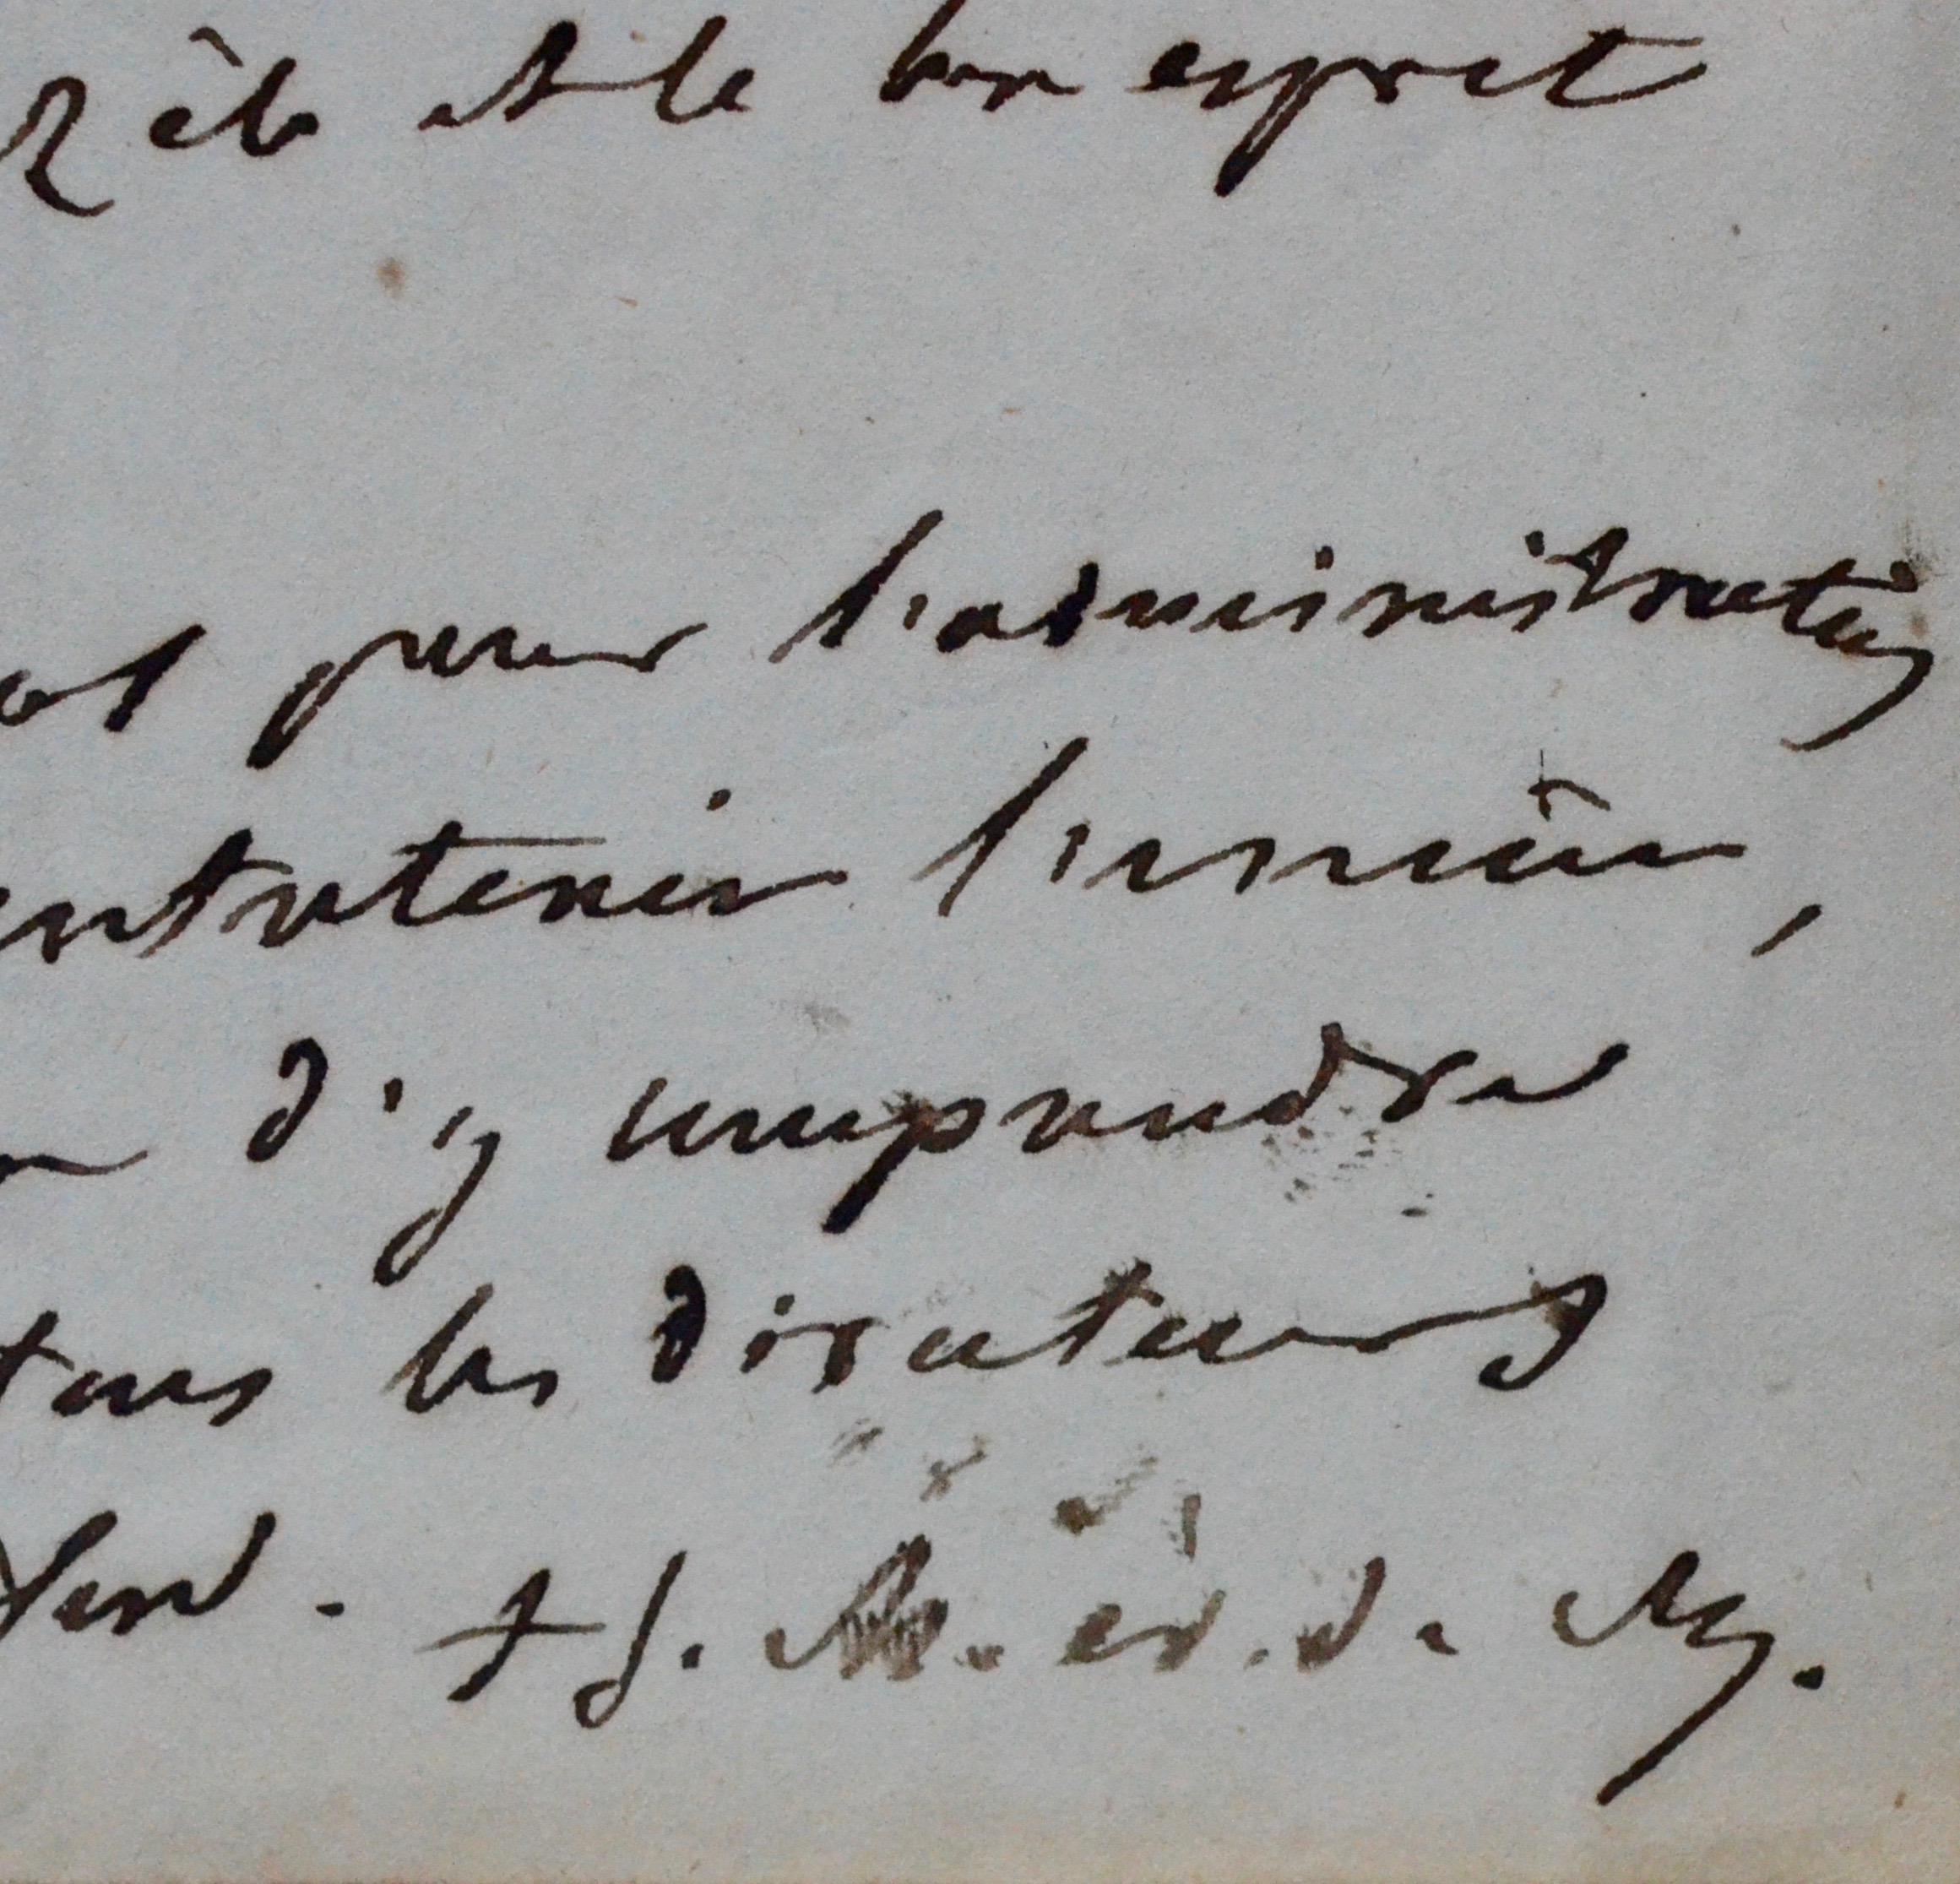 zèle et le bon esprit
pour l'administration
entretenir l'union,
d'y comprendre
tous les directeurs
+ J. M. év. d. M.